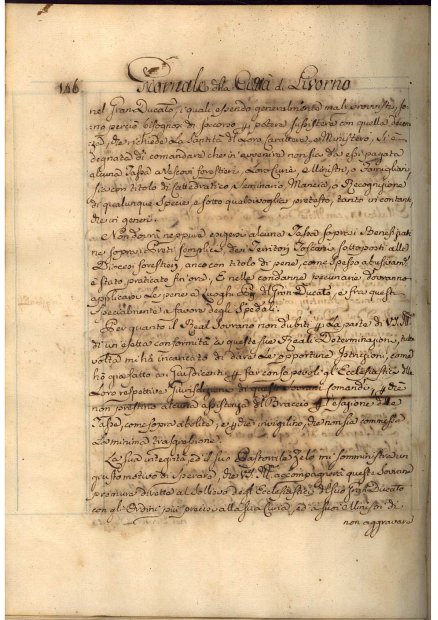 146. Giornale della Città di Livorno
nel Gran Ducato, i quali essendo generalmente male provvisti, so-
no perciò bisognosi di soccorso per potere sussistere con quella decen-
za, che richiede la Santità di Loro carattere, e Ministero, si è
degnata di comandare che in avvenire non sia da essi pagata
alcuna Tassa a Vescovi forestieri, Loro Curie, e Ministri, o Famigliari,
sia con titolo di Cattedratico, Seminario, Mancia, o Recognizione
di qualunque Specie, e sotto qualsivoglia pretesto, tanto in contanti
che in generi.
Non dovrà neppure esigersi alcuna Tassa sopra i Benefizia-
ti, e sopra i Preti semplici dei Territori Toscani sottoposti alle
Diocesi forestiere, anco con titolo di pene, come spesso abusivam.
è stato praticato fin'ora. E nelle condanne pecuniarie dovranno
applicarsi le pene a Luoghi Pii del Gran Ducato, e fra questi
specialmente a favore degli Spedali.
Per quanto il Real Sovrano non dubiti per la parte di V.S.
di un'esatta conformità a queste sue Reali Determinazioni, tut-
tavolta mi ha incaricato di dare le opportune Istruzioni, come
hò già fatto ai Giusdicenti per far con sapevoli gl'Ecclesiastici della
Loro respettiva Giurisdizione di questi Sovrani Comandi, e per che
non prestino alcuna assistenza del Braccio per l'esazione delle
Tasse, come sopra abolite, e per che invigilino, che non sia commessa
la minima trasgressione.
La sua integrità ed il suo Pastorale Zelo mi somministra un
giusto motivo di sperare, che V.S. accompagnerà queste Sovrane
premure dirette al sollievo degl'Ecclesiastici del suo Gran Ducato
con gli Ordini più precisi alla sua Curia, ed a suoi Ministri di
non aggravare